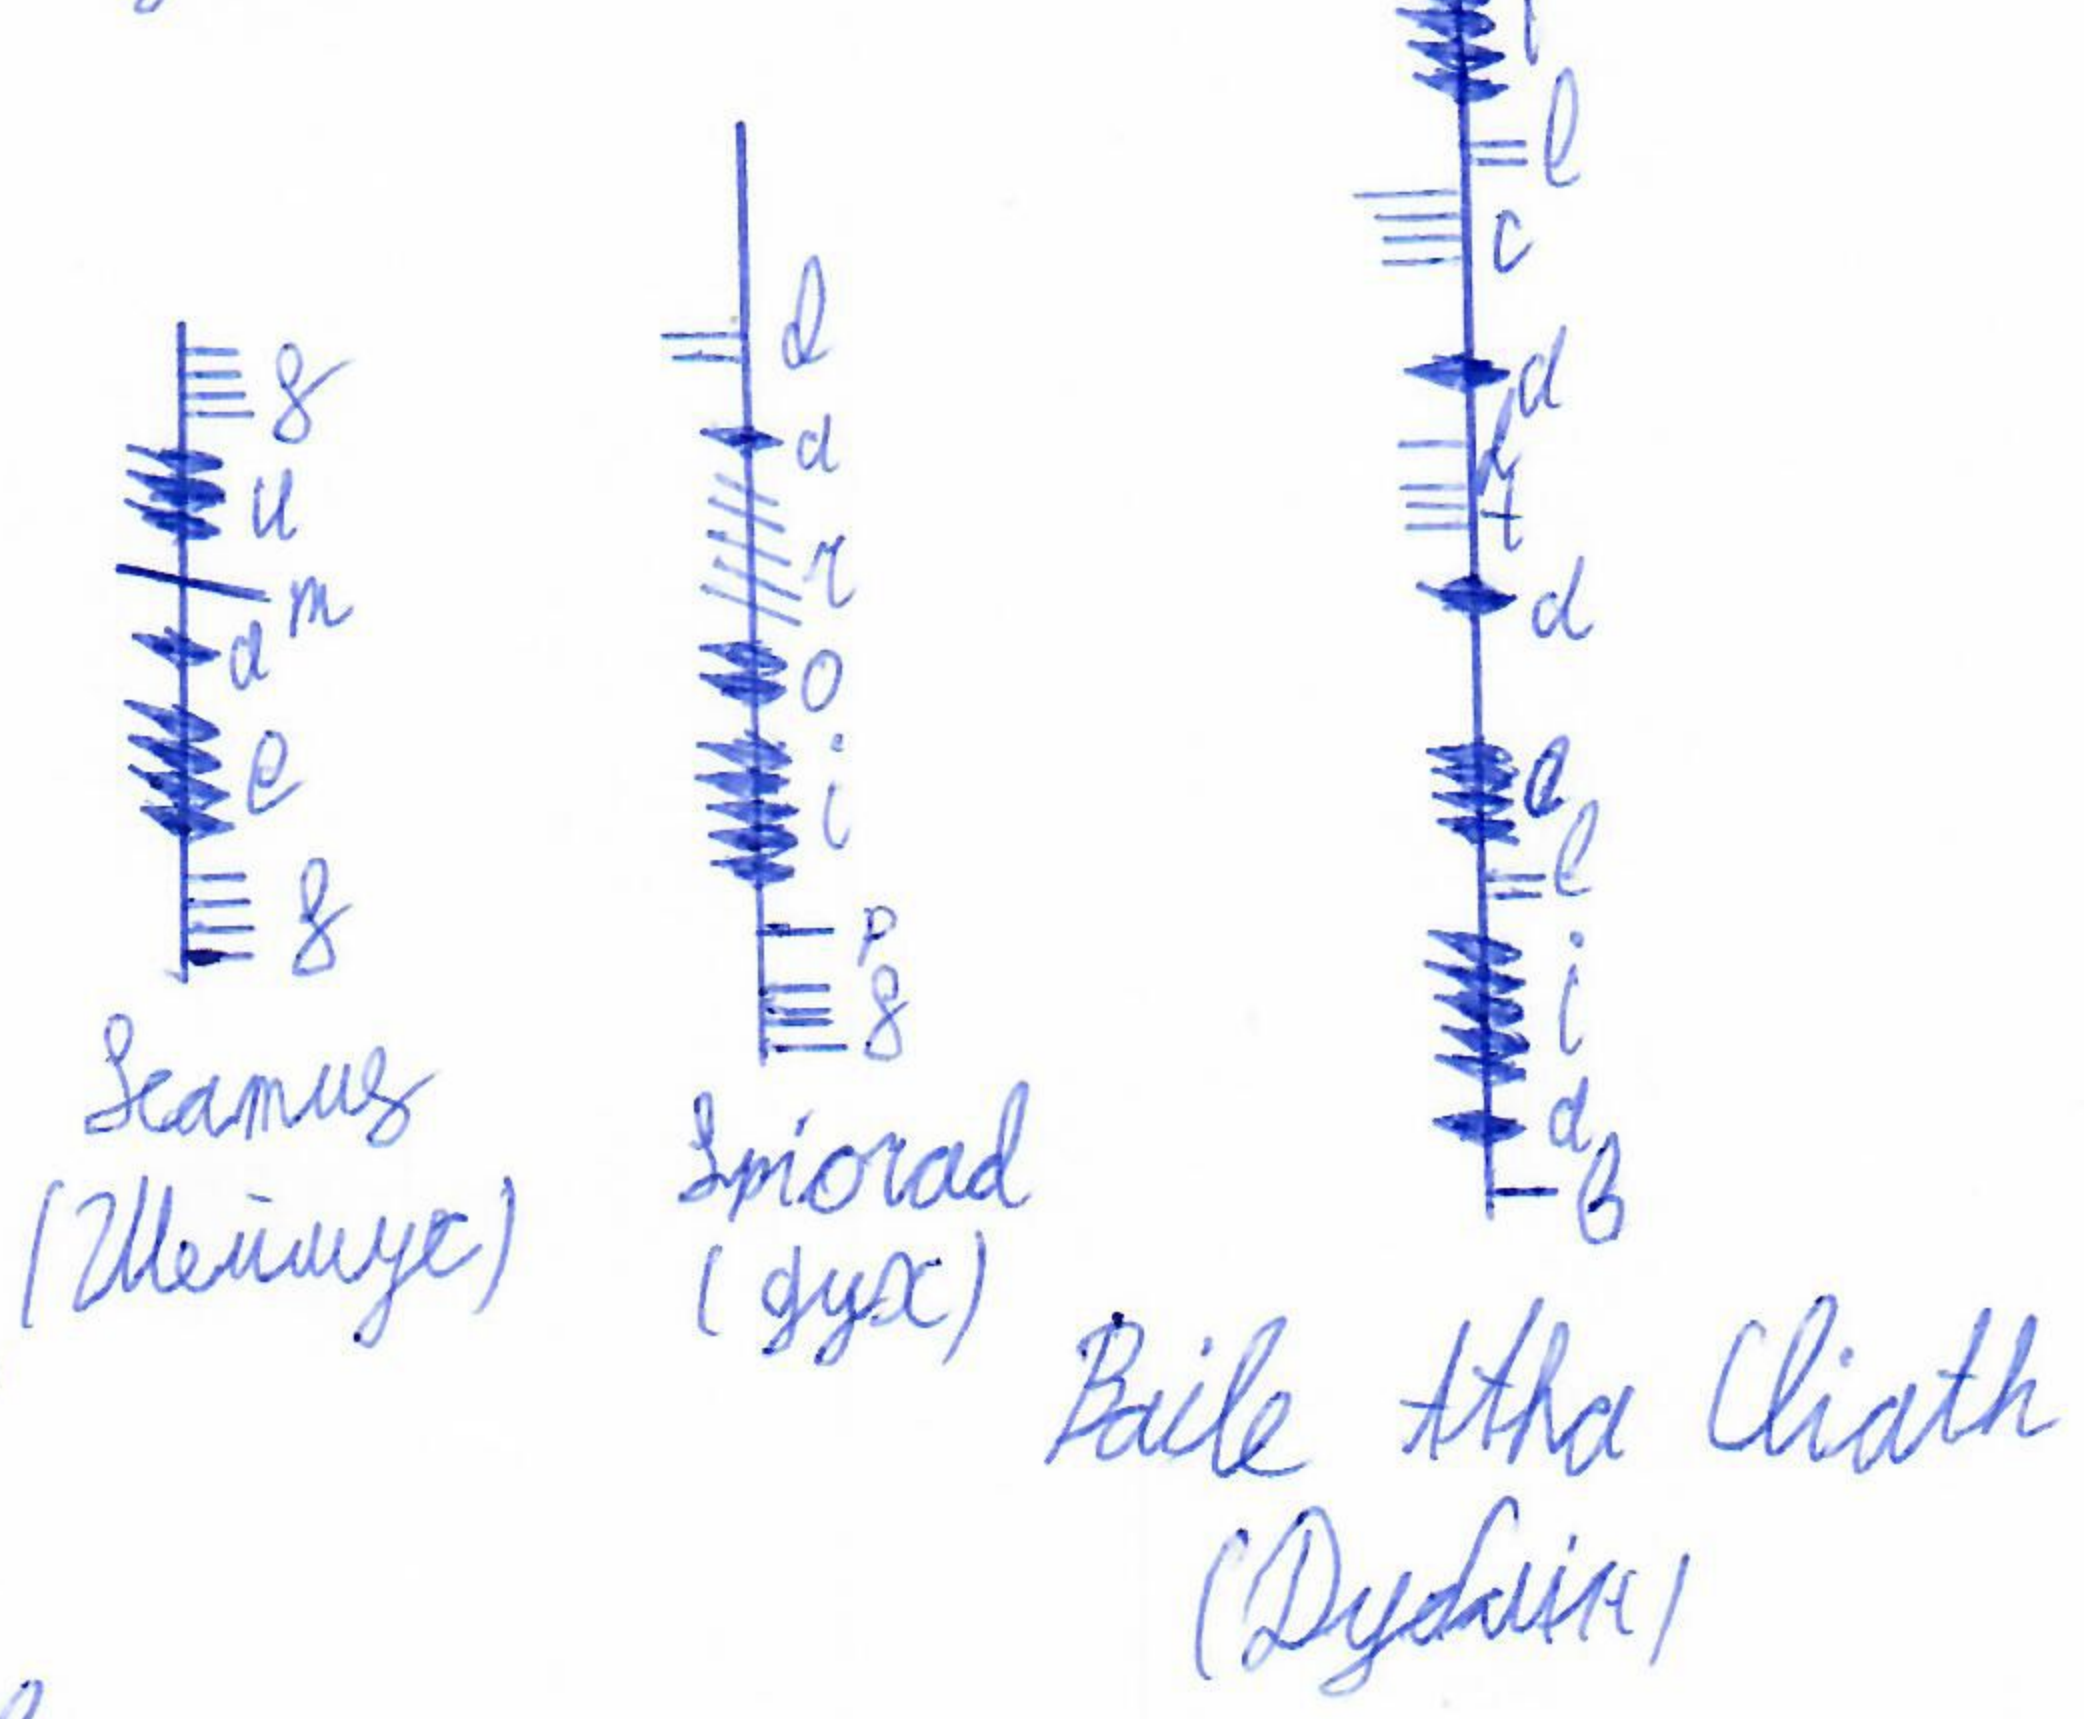 s
u
m
a
e
s
Seamus
(Шеймус)
d
a
r
o
i
p
s
Spiorad
(дух)
i
l
c
a
h
t
a
e
l
i
a
B
Baile Atha Cliath
(Дублин)